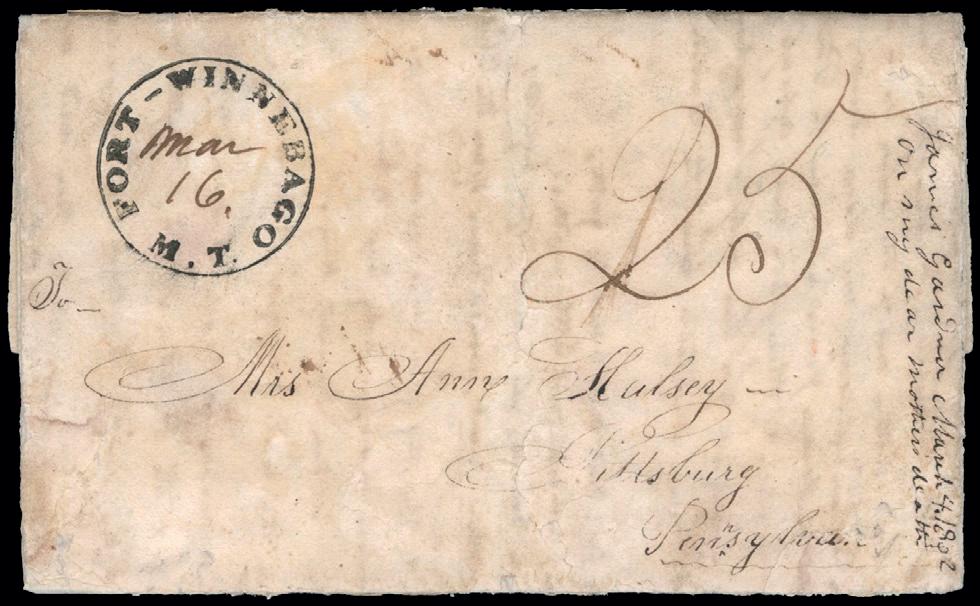 FORT-WINNEBAGO
M.T.
Mar
16.
25
To
Mrs Ann Hulsey
Pittsburg
Pensylvan
James Gardner March 4, 1832
On my dear mother's death